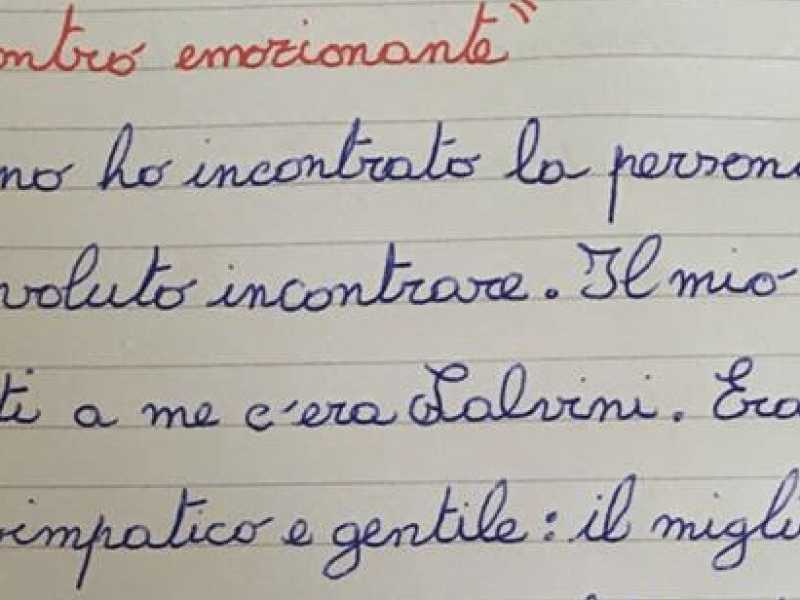 ontro emozionante"
no ho incontrato la person
voluto incontrare. Il mio
ti a me c'era Salvini. Era
simpatico e gentile: il migli